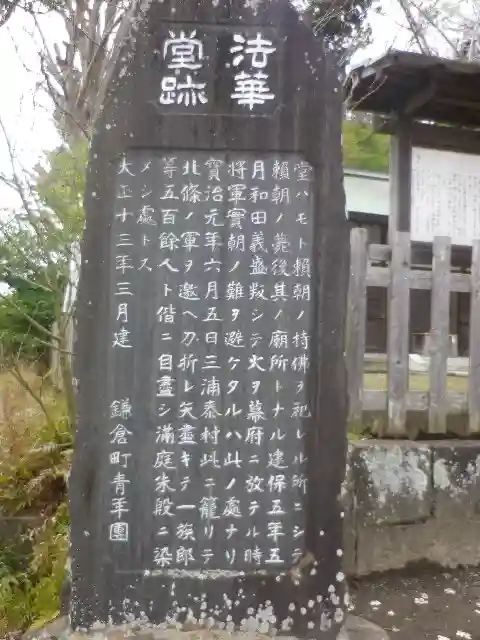 法華
堂跡
堂ハモト頼朝ノ持佛ヲ祀レル所ニシテ
頼朝ノ薨後其ノ廟所トナル建保五年五
月和田義盛叛シテ火ヲ幕府ニ放テル時
将軍實朝ノ難ヲ避ケタルハ此ノ處ナリ
寳治元年六月五日三浦泰村此ニ籠リテ
北條ノ軍ヲ邀ヘ刀折レ矢盡キテ一族郎
等五百餘人ト偕ニ自盡シ満庭朱殷ニ染
メシ處トス
大正十三年三月建 鎌倉町青年團